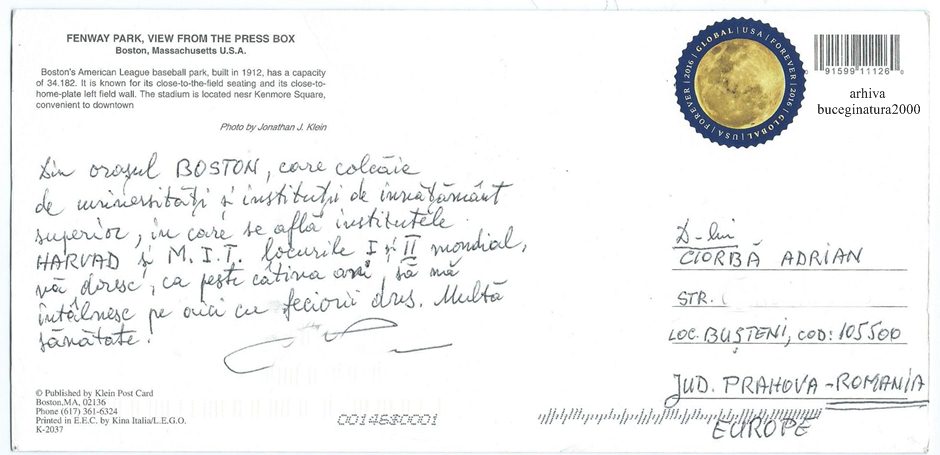 FENWAY PARK, VIEW FROM THE PRESS BOX
Boston, Massachusetts U.S.A.
Boston's American League baseball park, built in 1912, has a capacity
of 34.182. It is known for its close-to-the-field seating and its close-to-
home-plate left field wall. The stadium is located nesr Kenmore Square,
convenient to downtown
Photo by Jonathan J. Klein
GLOBAL | USA | FOREVER | 2016 | GLOBAL | USA | FOREVER | 2016
0 91599 11126 0
arhiva
buceginatura2000
Din orașul BOSTON, care colcăie
de universități și instituții de învățământ
superior, în care se află institutele
HARVAD și M.I.T. locurile I și II mondial,
vă doresc, ca peste câțiva ani, să mă
întâlnesc pe aici cu feciorii dvs. Multă
sănătate!
D-lui
CIORBĂ ADRIAN
STR.
LOC. BUȘTENI, COD: 105500
JUD. PRAHOVA - ROMANIA
EUROPE
© Published by Klein Post Card
Boston,MA, 02136
Phone (617) 361-6324
Printed in E.E.C. by Kina Italia/L.E.G.O.
K-2037